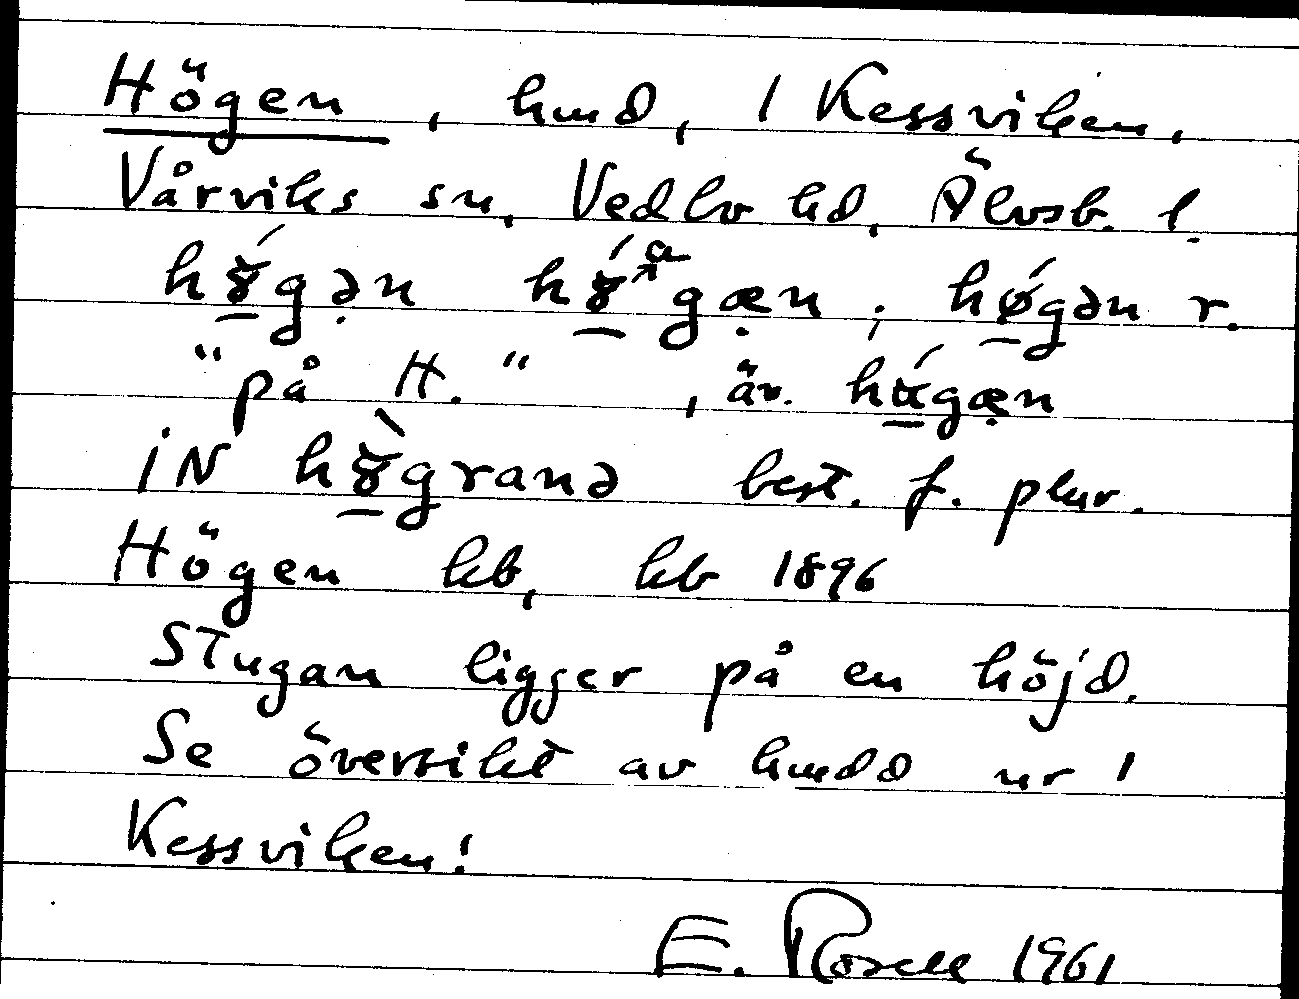 Högen, hmd, 1 Kessviken,
Vårviks sn, Vedbo hd, Älvsb. l.
högən högæn; høgən r.
"på H.", äv. högæn
IN högranə best. f. plur.
Högen kb, hb 1896
Stugan ligger på en höjd.
Se översikt av hmdd nr 1
Kessviken!
E. Rosell 1961